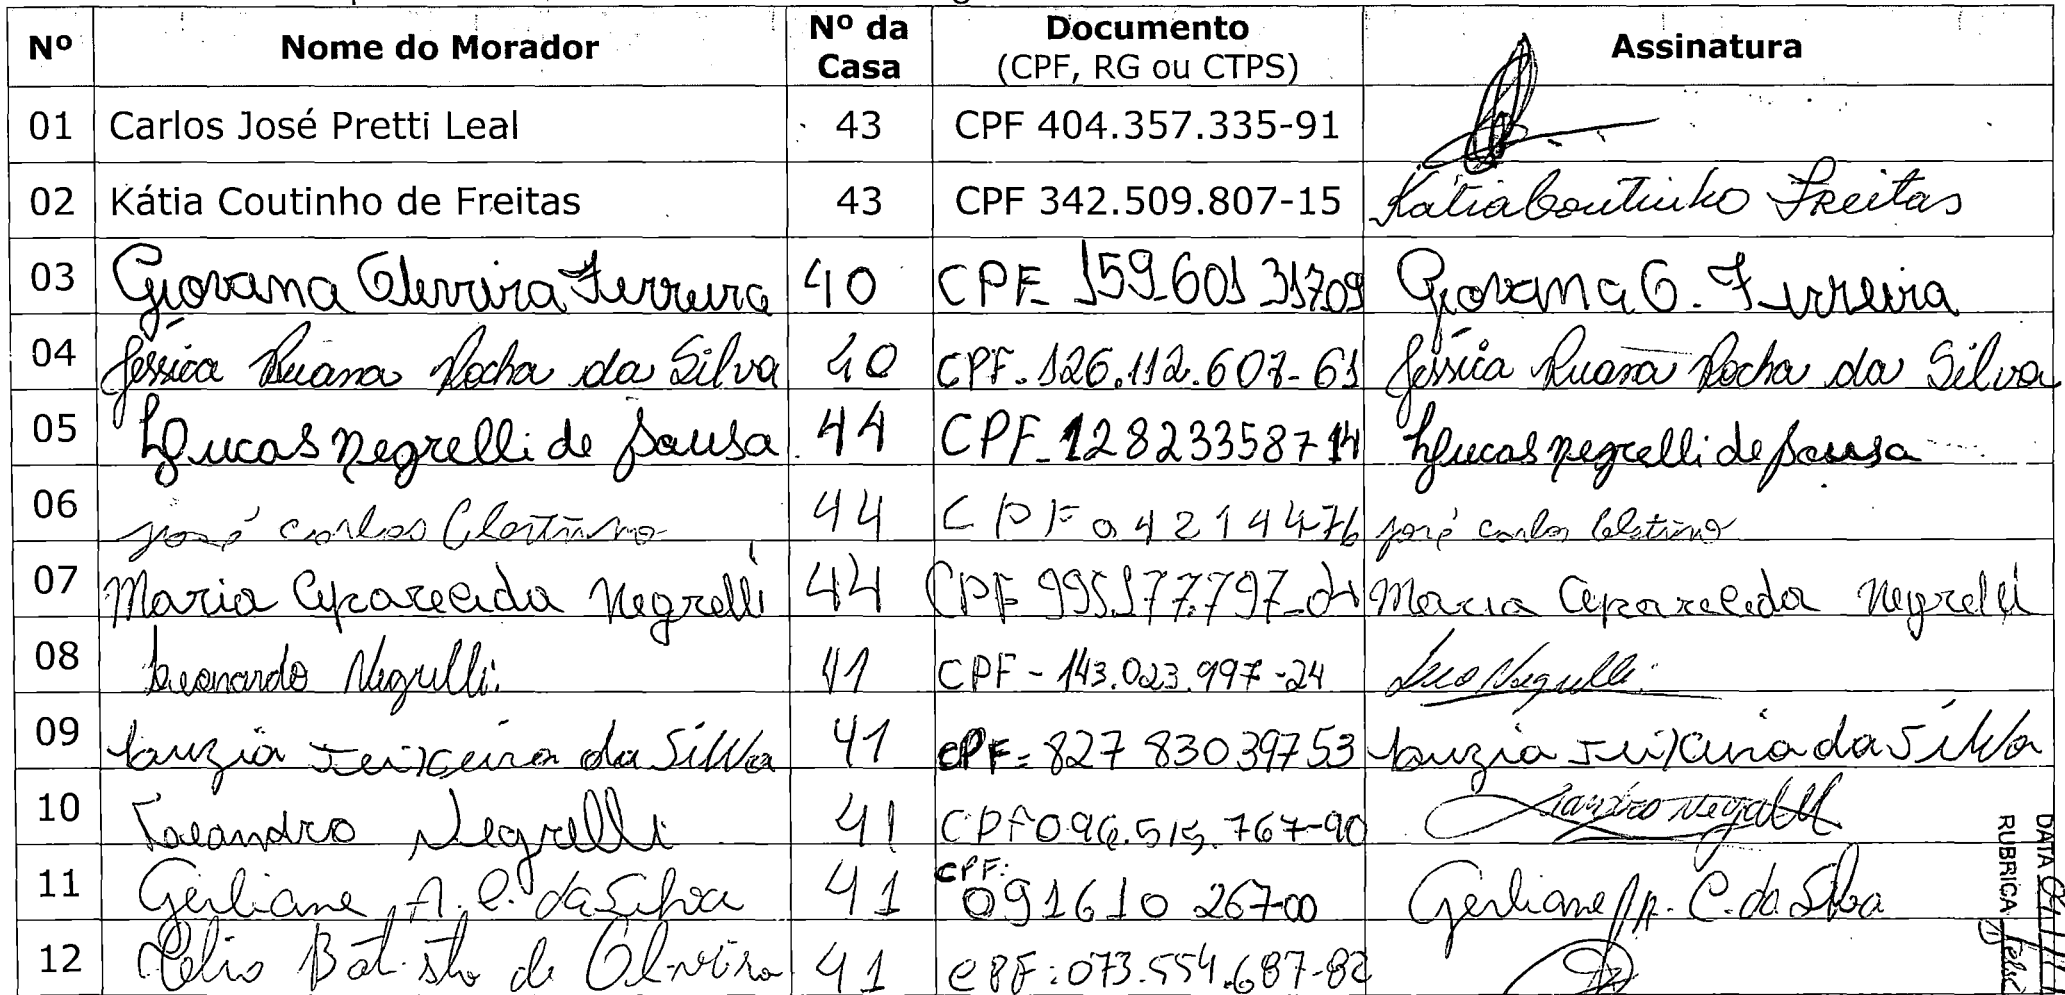 Nº Nome do Morador Nº da Casa Documento (CPF, RG ou CTPS) Assinatura
01 Carlos José Pretti Leal 43 CPF 404.357.335-91
02 Kátia Coutinho de Freitas 43 CPF 342.509.807-15 Kátia Coutinho Freitas
03 Giovana Oliveira Ferreira 40 CPF 159.601 31709 Giovana O. Ferreira
04 Jéssica Luana Rocha da Silva 40 CPF. 126.112.607-61 Jéssica Luana Rocha da Silva
05 Lucas Negrelli de Sousa 44 CPF 128233587 14 Lucas Negrelli de Sousa
06 José Carlos 44 CPF 04214476 José Carlos
07 Maria Aparecida Negrelli 44 CPF 995.177.797- Maria Aparecida Negrelli
08 Leonardo Negrelli. 41 CPF - 143.023.997-24 Leo Negrelli.
09 Luzia Teixeira da Silva 41 CPF= 827 830 397 53 Luzia Teixeira da Silva
10 Leandro Negrelli 41 CPF 096.515.767-90 Leandro Negrelli
11 Gerliane A. C. da Silva 41 CPF: 091610 267-00 Gerliane Ap. C. da Silva
12 Célio Batista de Oliveira 41 CPF: 073.554.687-82
DATA
RUBRICA